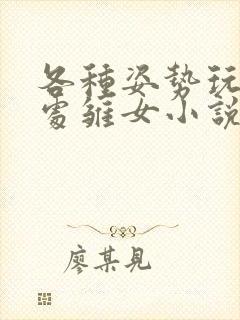 各種姿勢玩
處雛女小說
廖某見